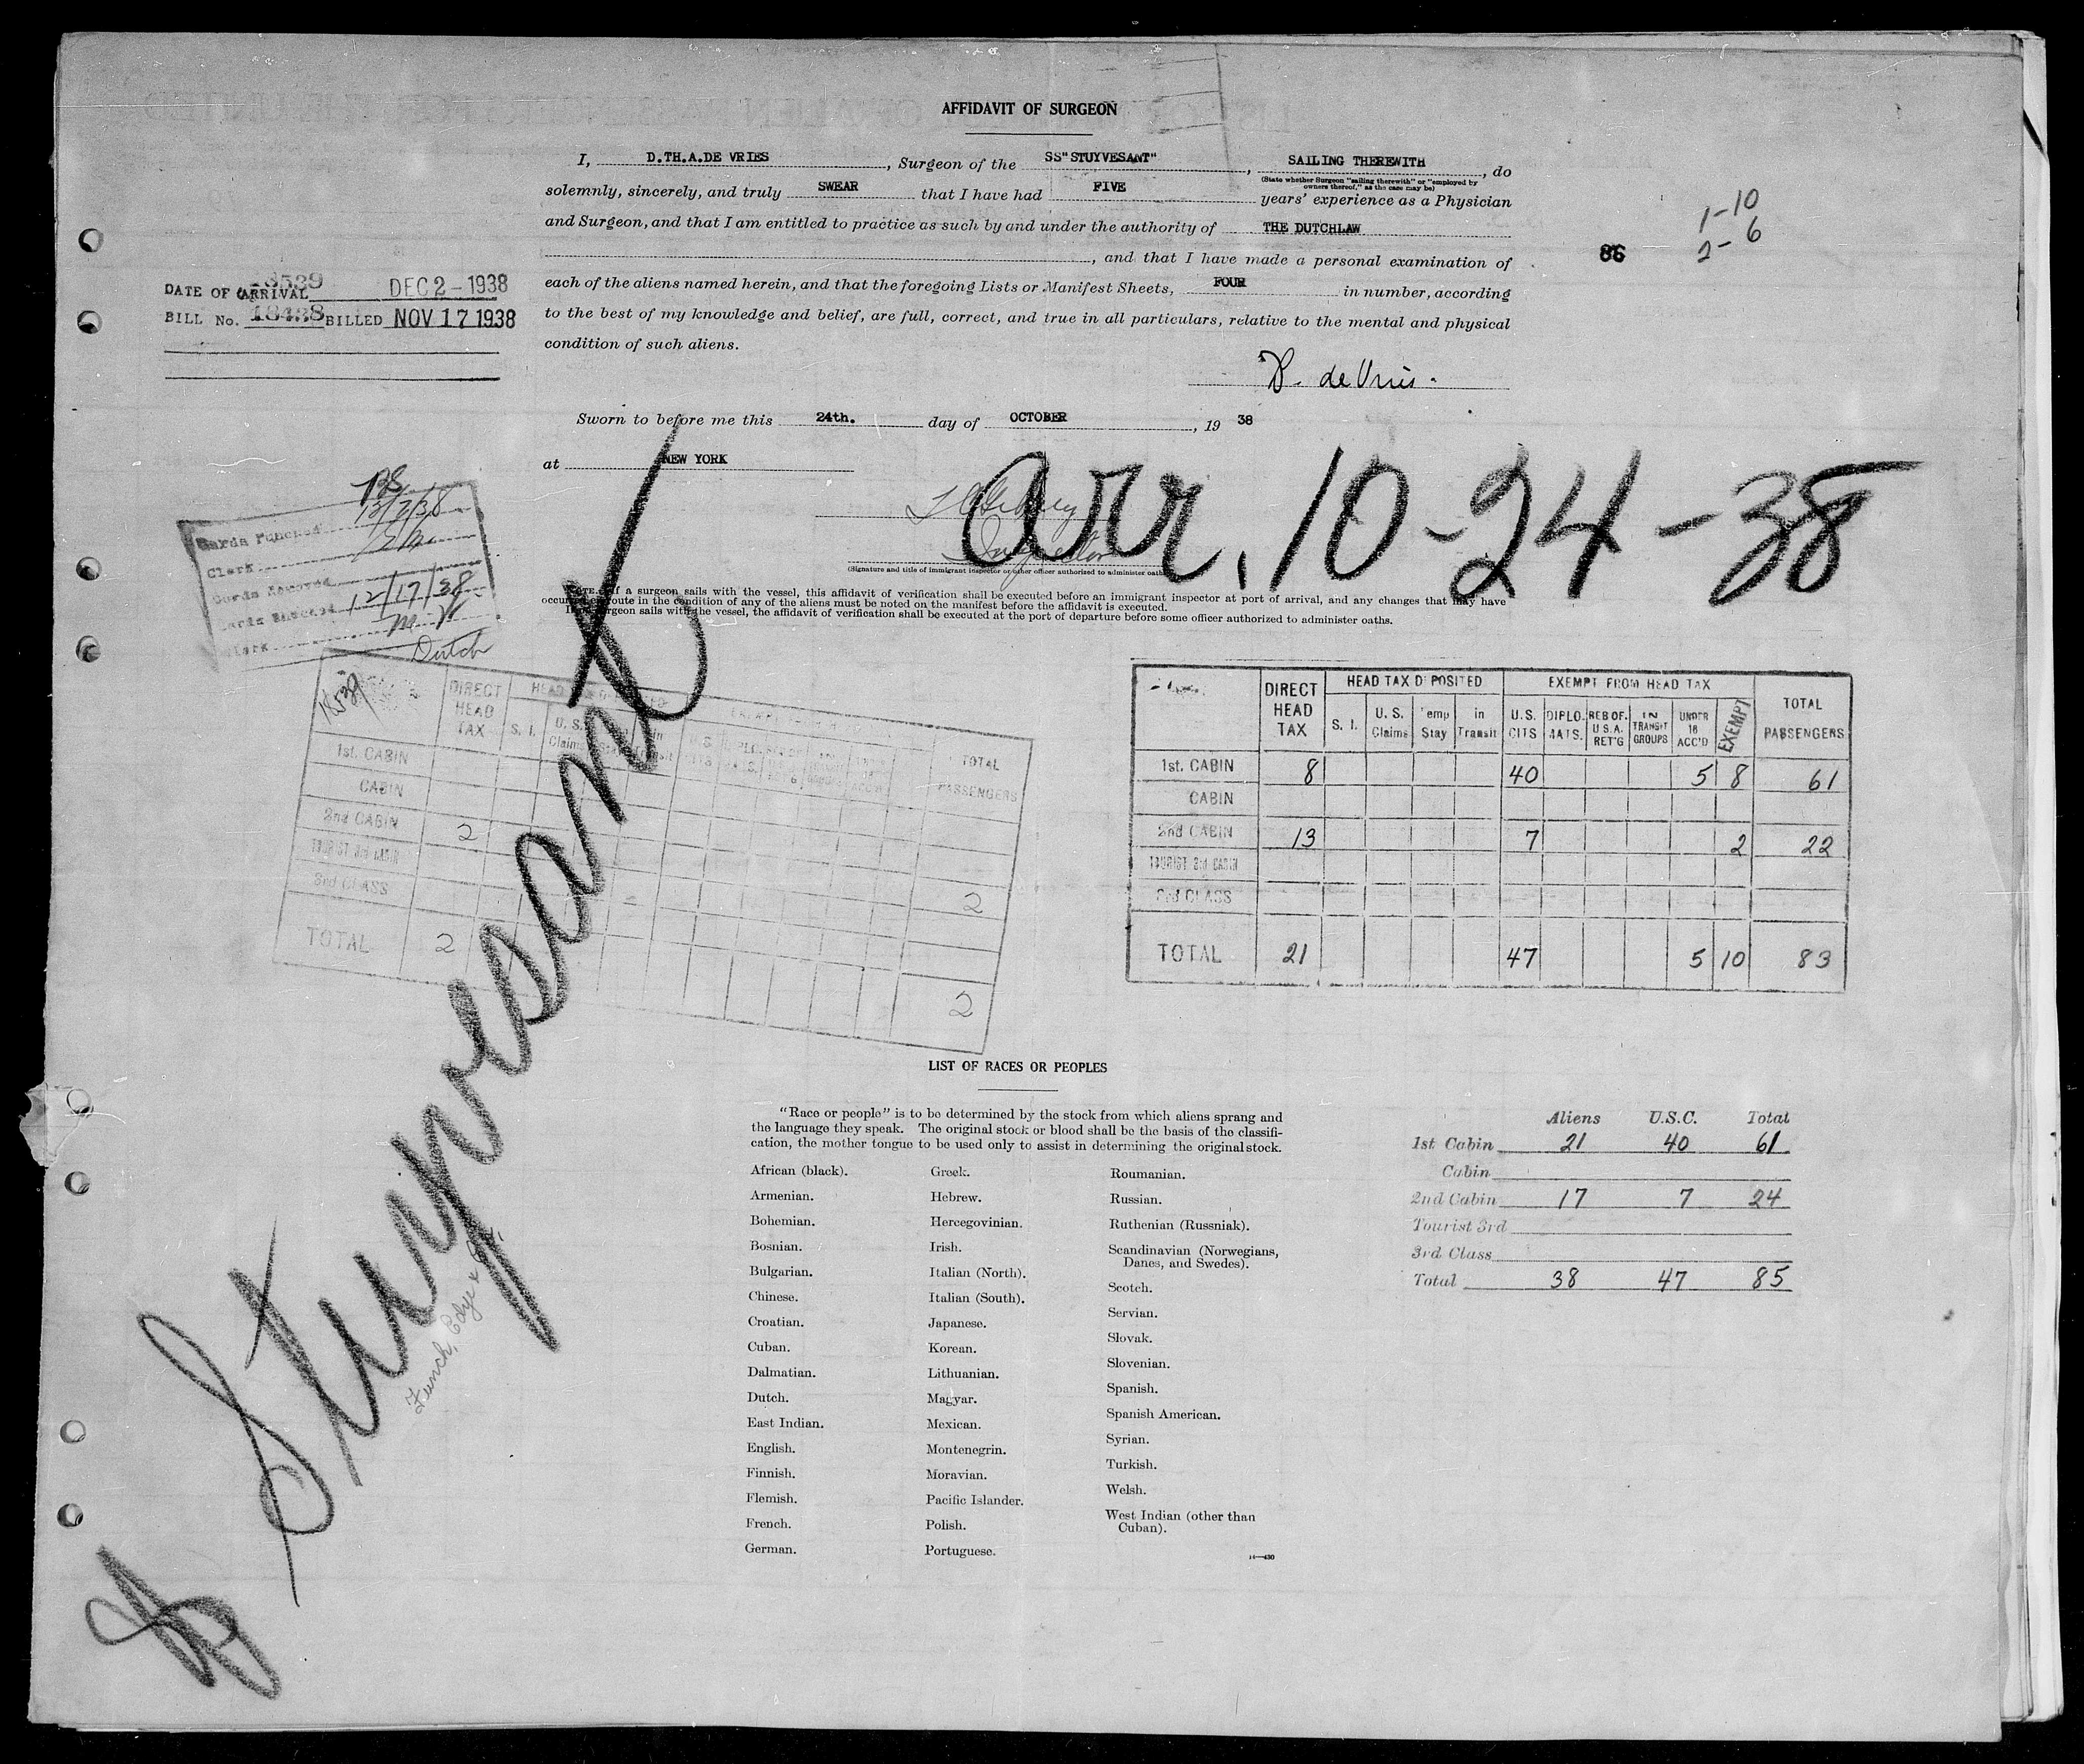 AFFIDAVIT OF SURGEON
I, D.TH.A.DE VRIES, Surgeon of the SS"STUYVESANT", SAILING THEREWITH, do
(State whether Surgeon "sailing therewith" or "employed by
owners thereof," as the case may be)
solemnly, sincerely, and truly SWEAR that I have had FIVE years' experience as a Physician
and Surgeon, and that I am entitled to practice as such by and under the authority of THE DUTCHLAW
, and that I have made a personal examination of
each of the aliens named herein, and that the foregoing Lists or Manifest Sheets, FOUR in number, according
to the best of my knowledge and belief, are full, correct, and true in all particulars, relative to the mental and physical
condition of such aliens.
D. de Vries.
1-10
2-6
86
DATE OF ARRIVAL DEC 2-1938
BILL No. 18438 BILLED NOV 17 1938
Sworn to before me this 24th. day of OCTOBER, 19 38
at NEW YORK
Arr. 10-24-38
Inspector
(Signature and title of immigrant inspector or other officer authorized to administer oaths)
NOTE.—If a surgeon sails with the vessel, this affidavit of verification shall be executed before an immigrant inspector at port of arrival, and any changes that may have
occurred en route in the condition of any of the aliens must be noted on the manifest before the affidavit is executed.
If no surgeon sails with the vessel, the affidavit of verification shall be executed at the port of departure before some officer authorized to administer oaths.
Cards Punched 12/2/38
Clerk
Cards
Cards Checked 12/17/38
Clerk
Dutch
Stuyvesant
Funch, Edye & Co.
18539
DIRECT HEAD TAX
S. I.
U. S. Claims
TOTAL PASSENGERS
1st. CABIN
CABIN
2nd CABIN 2
TOURIST 3rd CABIN
3rd CLASS 2
TOTAL 2 2
DIRECT HEAD TAX
HEAD TAX DEPOSITED
EXEMPT FROM HEAD TAX
TOTAL PASSENGERS
S. I. U. S. Claims Temp Stay in Transit U.S. CITS DIPLOMATS. RES OF. U S A. RET'G IN TRANSIT GROUPS UNDER 16 ACC'D EXEMPT
1st. CABIN 8 40 5 8 61
CABIN
2nd CABIN 13 7 2 22
TOURIST 3rd CABIN
3rd CLASS
TOTAL 21 47 5 10 83
LIST OF RACES OR PEOPLES
"Race or people" is to be determined by the stock from which aliens sprang and
the language they speak. The original stock or blood shall be the basis of the classifi-
cation, the mother tongue to be used only to assist in determining the original stock.
African (black).
Armenian.
Bohemian.
Bosnian.
Bulgarian.
Chinese.
Croatian.
Cuban.
Dalmatian.
Dutch.
East Indian.
English.
Finnish.
Flemish.
French.
German.
Greek.
Hebrew.
Hercegovinian.
Irish.
Italian (North).
Italian (South).
Japanese.
Korean.
Lithuanian.
Magyar.
Mexican.
Montenegrin.
Moravian.
Pacific Islander.
Polish.
Portuguese.
Roumanian.
Russian.
Ruthenian (Russniak).
Scandinavian (Norwegians,
Danes, and Swedes).
Scotch.
Servian.
Slovak.
Slovenian.
Spanish.
Spanish American.
Syrian.
Turkish.
Welsh.
West Indian (other than
Cuban).
14-430
Aliens U.S.C. Total
1st Cabin 21 40 61
Cabin
2nd Cabin 17 7 24
Tourist 3rd
3rd Class
Total 38 47 85